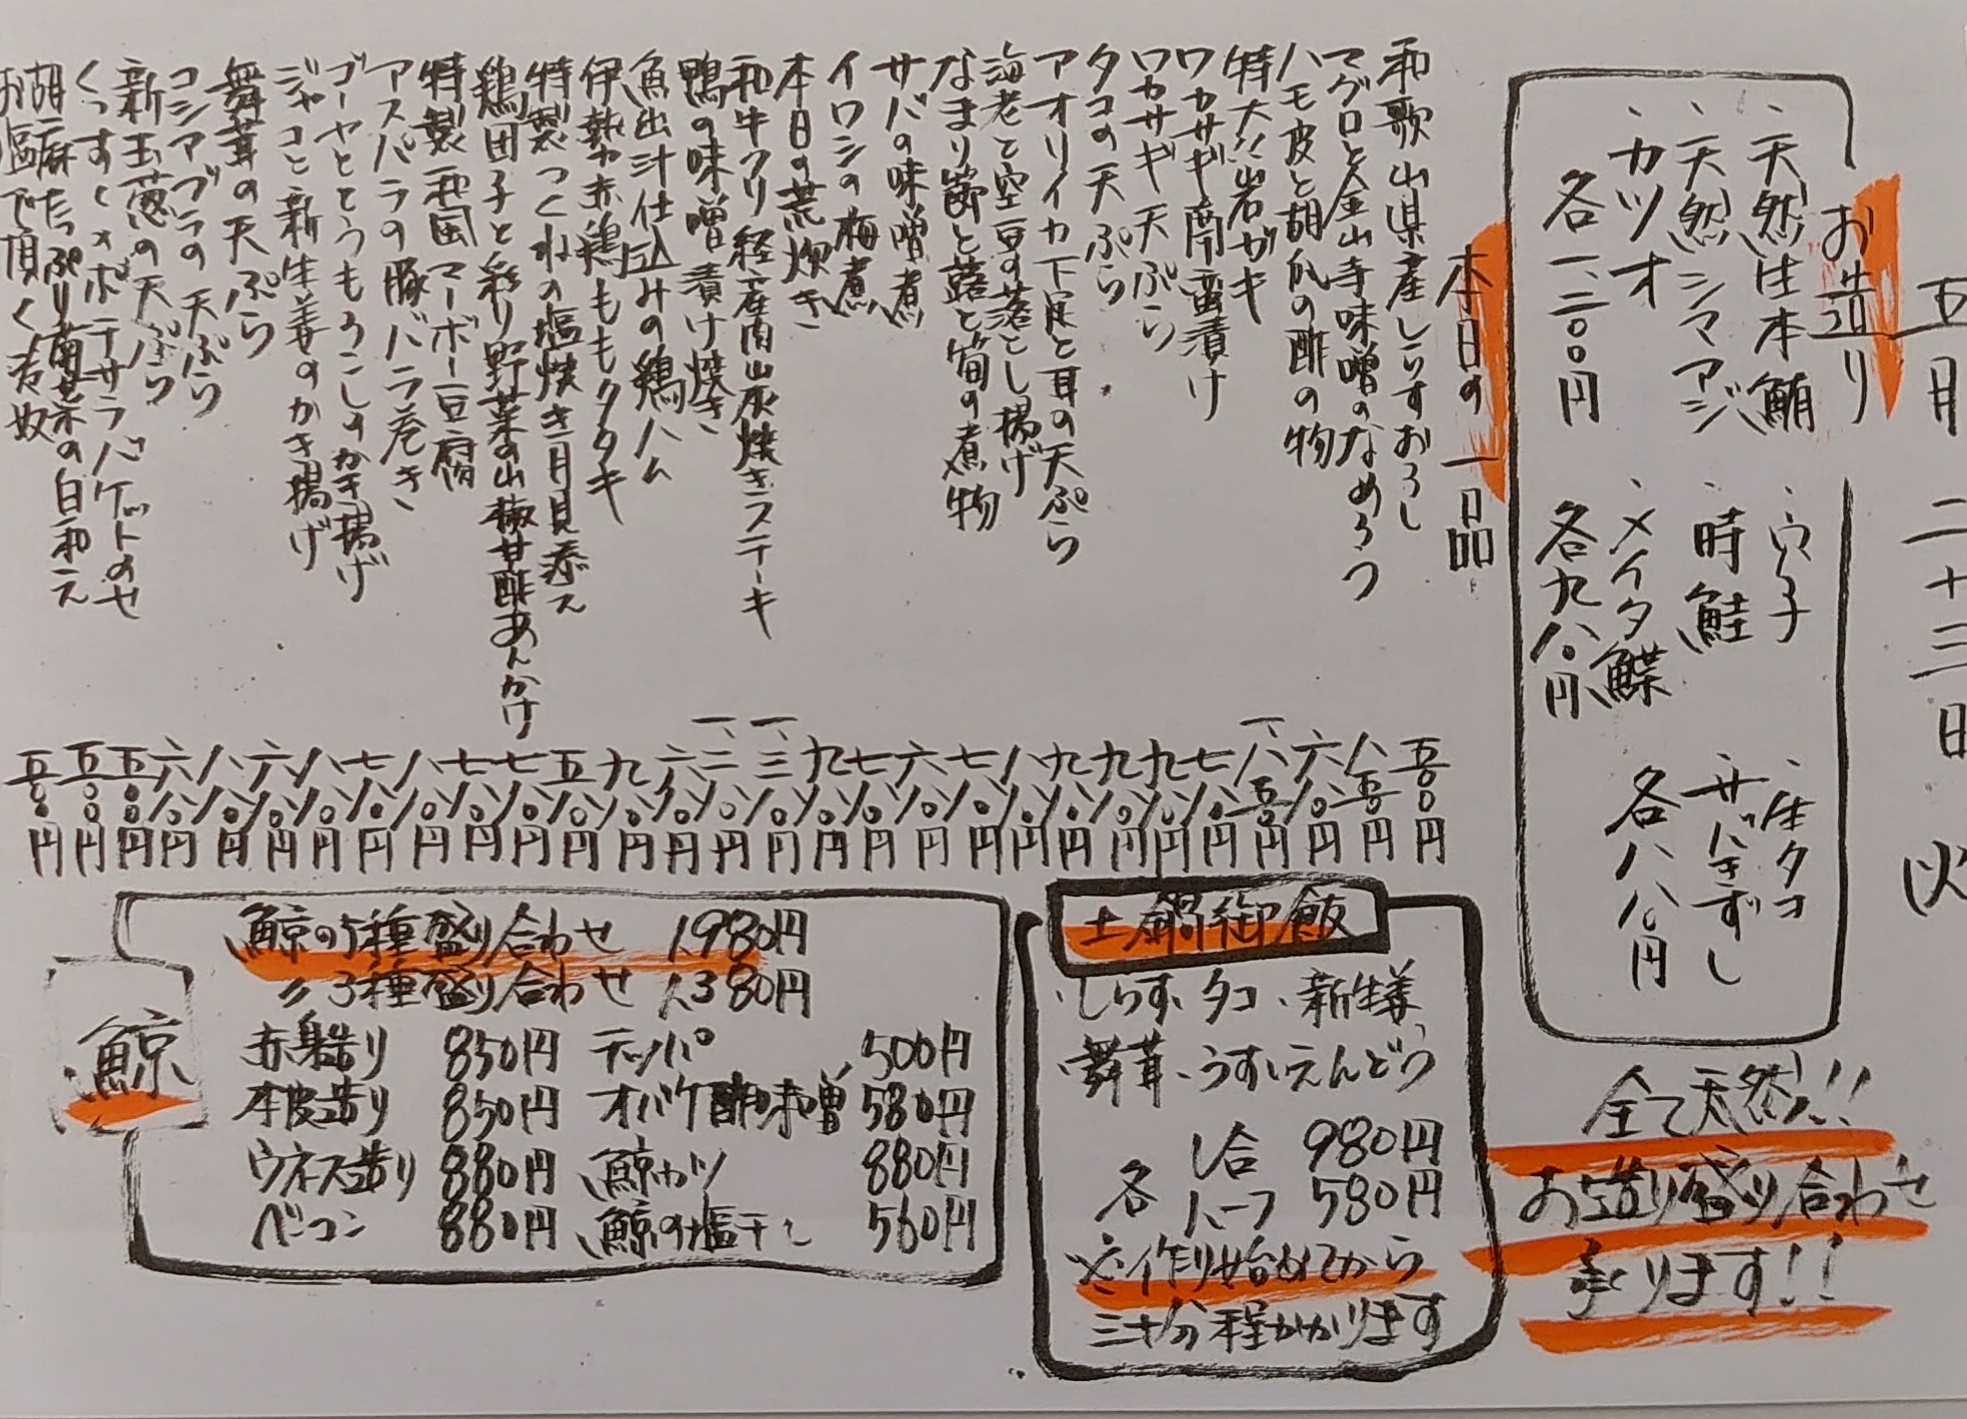 五月二十三日 火
お造り
・天然生本鮪
・天然シマアジ
・カツオ
各一、二〇〇円
・穴子
・時鮭
・メイタ鰈
各九八〇円
・生タコ
・サバきずし
各八八〇円
全て天然!!
お造り盛り合わせ
承ります!!
本日の一品
和歌山県産しらすおろし 五〇〇円
マグロと金山寺味噌のなめろう 八五〇円
ハモ皮と胡瓜の酢の物 六八〇円
特大!!岩ガキ 一、八五〇円
ワカサギ南蛮漬け 七八〇円
ワカサギ天ぷら 九八〇円
タコの天ぷら 九八〇円
アオリイカ下足と耳の天ぷら 九八〇円
海老と空豆の落とし揚げ 八八〇円
なまり節と蕗と筍の煮物 七八〇円
サバの味噌煮 六八〇円
イワシの梅煮 七八〇円
本日の荒炊き 九八〇円
和牛クリ経産肉山灰焼きステーキ 一、三八〇円
鴨の味噌漬け焼き 一、二八〇円
魚出汁仕込みの鶏ハム 六八〇円
伊勢赤鶏ももタタキ 九八〇円
特製つくねの塩焼き月見添え 五八〇円
鶏団子と彩り野菜の山椒甘酢あんかけ 七八〇円
特製和風マーボー豆腐 七八〇円
アスパラの豚バラ巻き 八八〇円
ゴーヤととうもろこしのかき揚げ 七八〇円
ジャコと新生姜のかき揚げ 八八〇円
舞茸の天ぷら 六八〇円
コシアブラの天ぷら 八八〇円
新玉葱の天ぷら 六八〇円
くっすくポテサラバゲットのせ 五〇〇円
胡麻たっぷり菊菜の白和え 五〇〇円
お塩で頂く冷奴 五〇〇円
土鍋御飯
・しらす・タコ・新生姜
・舞茸・うすいえんどう
各 1合 980円
ハーフ 580円
※作り始めてから
三十分程かかります
鯨
鯨の5種盛り合わせ 1,980円
〃 3種盛り合わせ 1,380円
赤身造り 850円 テッパ 500円
本皮造り 850円 オバケ酢味噌 580円
ウネス造り 880円 鯨カツ 880円
ベーコン 880円 鯨の塩干し 560円